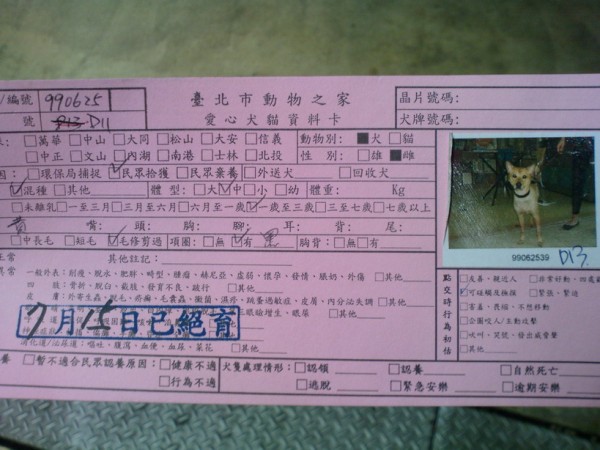 /編號 990625 臺北市動物之家 晶片號碼：
號 D11 愛心犬貓資料卡 犬牌號碼：
□萬華□中山□大同□松山□大安□信義 動物別：■犬□貓
□中正□文山☑內湖□南港□士林□北投 性 別：□雄■雌
□環保局捕捉☑民眾拾獲□民眾棄養□外送犬 □回收犬
☑混種□其他 體 型：□大☑中□小□幼 體重： Kg
□未離乳□一至三月□三月六月□六月至一歲☑一歲至三歲□三至七歲□七歲以上
黃 背： 頭： 胸： 腳： 耳： 背： 尾：
□中長毛 □短毛 ☑毛修剪過 項圈：□無☑有 黑 胸背：□無□有
99062539
D13
正常 其他註記：
異常
一般外表：削瘦、脫水、肥胖、畸型、腫瘤、赫尼亞、虛弱、懷孕、發情、脹奶、外傷 □其他
四 肢：骨折、脫臼、截肢、發育不良、跛行 □其他
皮 膚：外寄生蟲、脫毛、疥癬、毛囊蟲、黴菌、濕疹、跳蚤過敏症、皮屑、內分泌失調 □其他
7月15日已絕育
消化道/泌尿道：嘔吐、腹瀉、血便、血尿、菜花 □其他
點交時行為初估
□友善、親近人 □非常好動、四處
☑可碰觸及撫摸 □緊張、緊迫
□害羞、畏縮、不想移動
□企圖咬人/主動攻擊
□吠叫、哭號、發出威脅聲
□其他
養 □暫不適合民眾認養原因：□健康不適 犬隻處理情形：□認領 □認養 □自然死亡
□行為不適 □逃脫 □緊急安樂 □逾期安樂